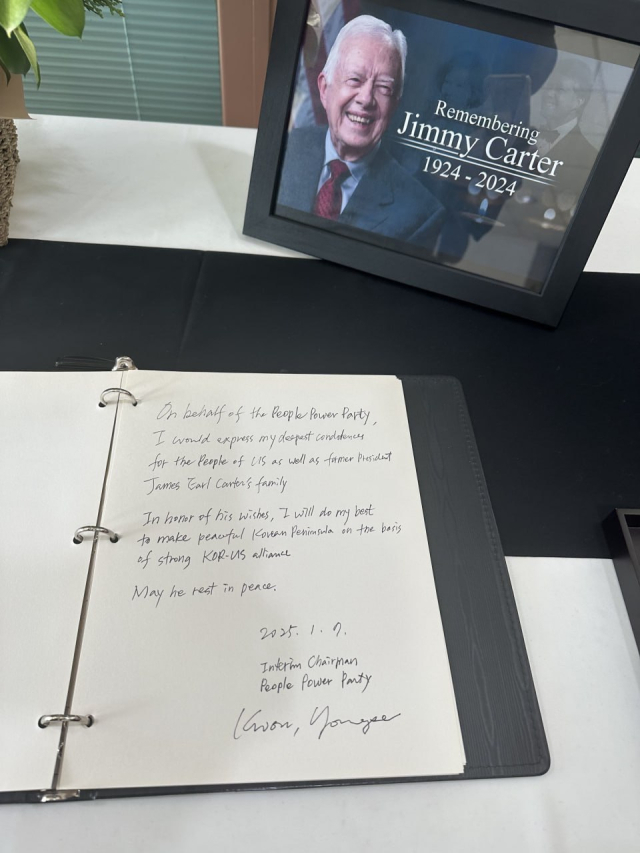 Remembering
Jimmy Carter
1924 - 2024
On behalf of the People Power Party,
I would express my deepest condolences
for the People of US as well as former President
James Earl Carter's family
In honor of his wishes, I will do my best
to make peaceful Korean Peninsula on the basis
of strong KOR-US alliance
May he rest in peace.
2025. 1. 7.
Interim Chairman
People Power Party
Kwon, Youngse